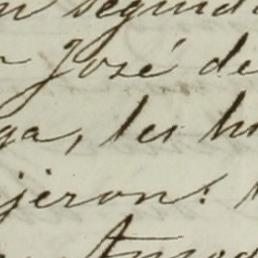 n segund
José de
ga, les hi
jeron: